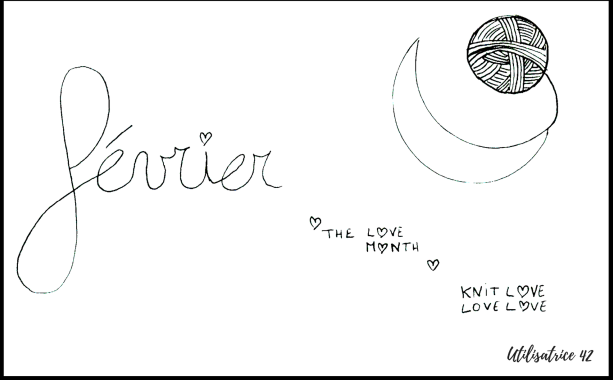 février
THE LOVE
MONTH
KNIT LOVE
LOVE LOVE
Utilisatrice 42